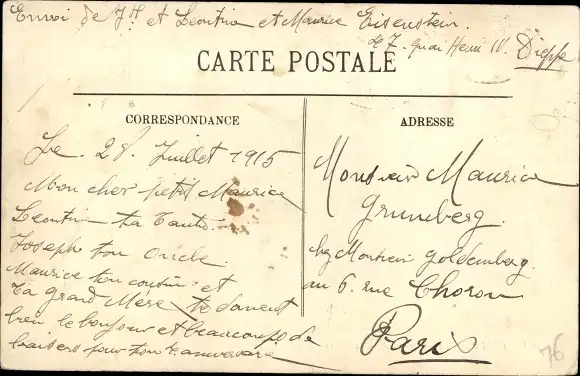 Envoi de J.H et Leontine et Maurice Eisenstein.
47. quai Henri IV. Dieppe
CARTE POSTALE
CORRESPONDANCE
Le. 28. Juillet 1915
Mon cher petit Maurice
Leontine ta Tante.
Joseph ton oncle.
Maurice ton cousin et
ta grand Mère te donent
bien le bonjour et beaucoups de
baisers pour ton anniversaire
ADRESSE
Monsieur Maurice
Grumberg.
chez Monsieur Goldemberg.
au 6. rue Choron
Paris
76